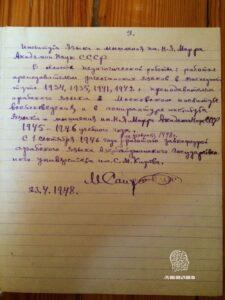 Институт языка и мышления им. Н.Я. Марра
Академии Наук СССР
В области педагогической работы: работал
преподавателем языков в
1934, 1935, 1941, 1942 г. преподавателем
арабского языка в Московском институте
востоковедения и в аспирантуре института
языка и мышления им. Н.Я. Марра Академии Наук СССР
1945-1946 учебного года.
С 1 сентября 1946 года работаю завкафедрой
арабского языка государствен-
ного университета им. С.М. Кирова.
23.4.1948.